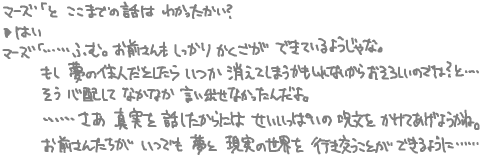 マーズ「と ここまでの話は わかったかい?
▶はい
マーズ「……ふむ。お前さんも しっかり かくごが できているようじゃな。
もし 夢の住人だとしたら いつか 消えてしまうかもしれないから おそろしいのでは?と…
そう 心配して なかなか 言い出せなかったんだよ。
……さあ 真実を 話したからには せいいっぱいの 呪文を かけてあげようかね。
お前さんたちが いつでも 夢と 現実の世界を 行き交うことが できるように……